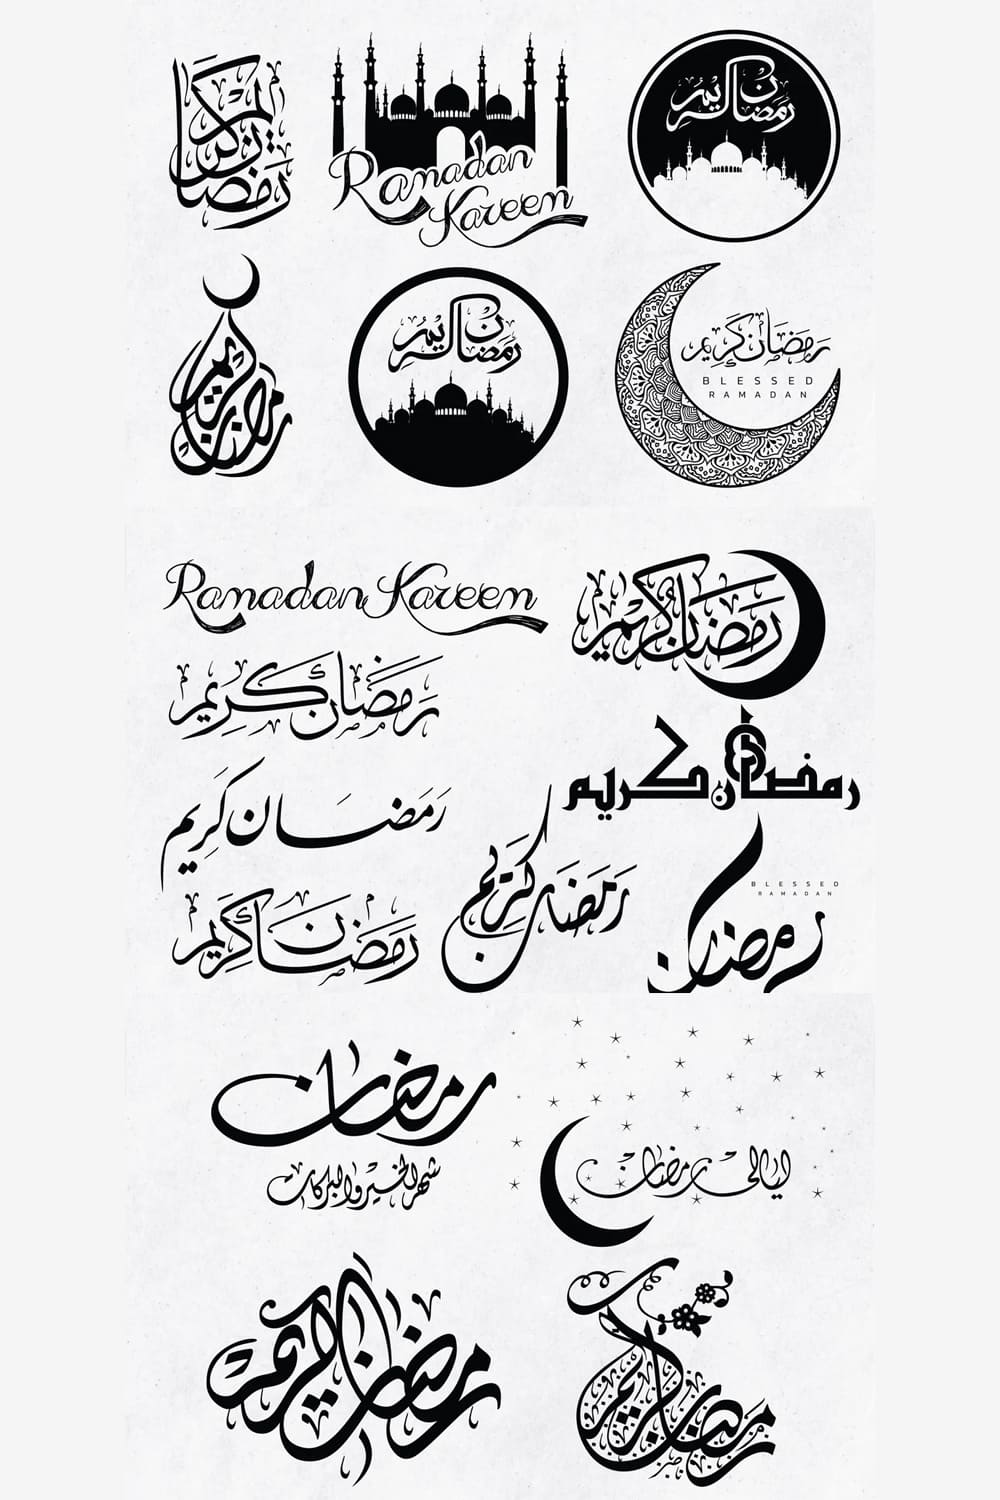 رمضان كريم
Ramadan
Kareem
رمضان كريم
رمضان كريم
رمضان كريم
رَمَضَان كَرِيم
BLESSED
RAMADAN
Ramadan Kareem
رَمَضَان كَرِيم
رَمَضَان كَرِيم
رمضان كريم
رَمَضَان كَرِيم
رَمَضَان كَرِيم
رَمَضَان كَرِيم
BLESSED
RAMADAN
رمضان
رمضان
شهر الخير والبركات
ليالي رمضان
رمضان كريم
رمضان كريم